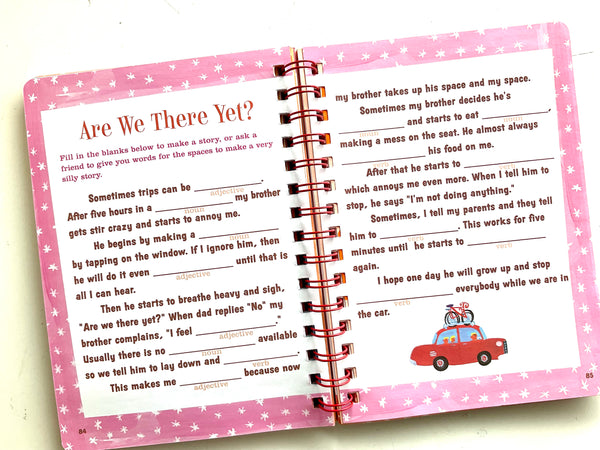 Are We There Yet?
Fill in the blanks below to make a story, or ask a
friend to give you words for the spaces to make a very
silly story.
Sometimes trips can be ____________.
adjective
After five hours in a ____________ my brother
noun
gets stir crazy and starts to annoy me.
He begins by making a ____________
noun
by tapping on the window. If I ignore him, then
he will do it even ____________ until that is
adjective
all I can hear.
Then he starts to breathe heavy and sigh,
"Are we there yet?" When dad replies "No" my
brother complains, "I feel ____________."
adjective
Usually there is no ____________ available
noun
so we tell him to lay down and ____________.
verb
This makes me ____________ because now
adjective
84
my brother takes up his space and my space.
Sometimes my brother decides he's
____________ and starts to eat ____________,
noun noun
making a mess on the seat. He almost always
____________ his food on me.
verb
After that he starts to ____________
verb
which annoys me even more. When I tell him to
stop, he says "I'm not doing anything."
Sometimes, I tell my parents and they tell
him to ____________. This works for five
verb
minutes until he starts to ____________
verb
again.
I hope one day he will grow up and stop
____________ everybody while we are in
verb
the car.
85